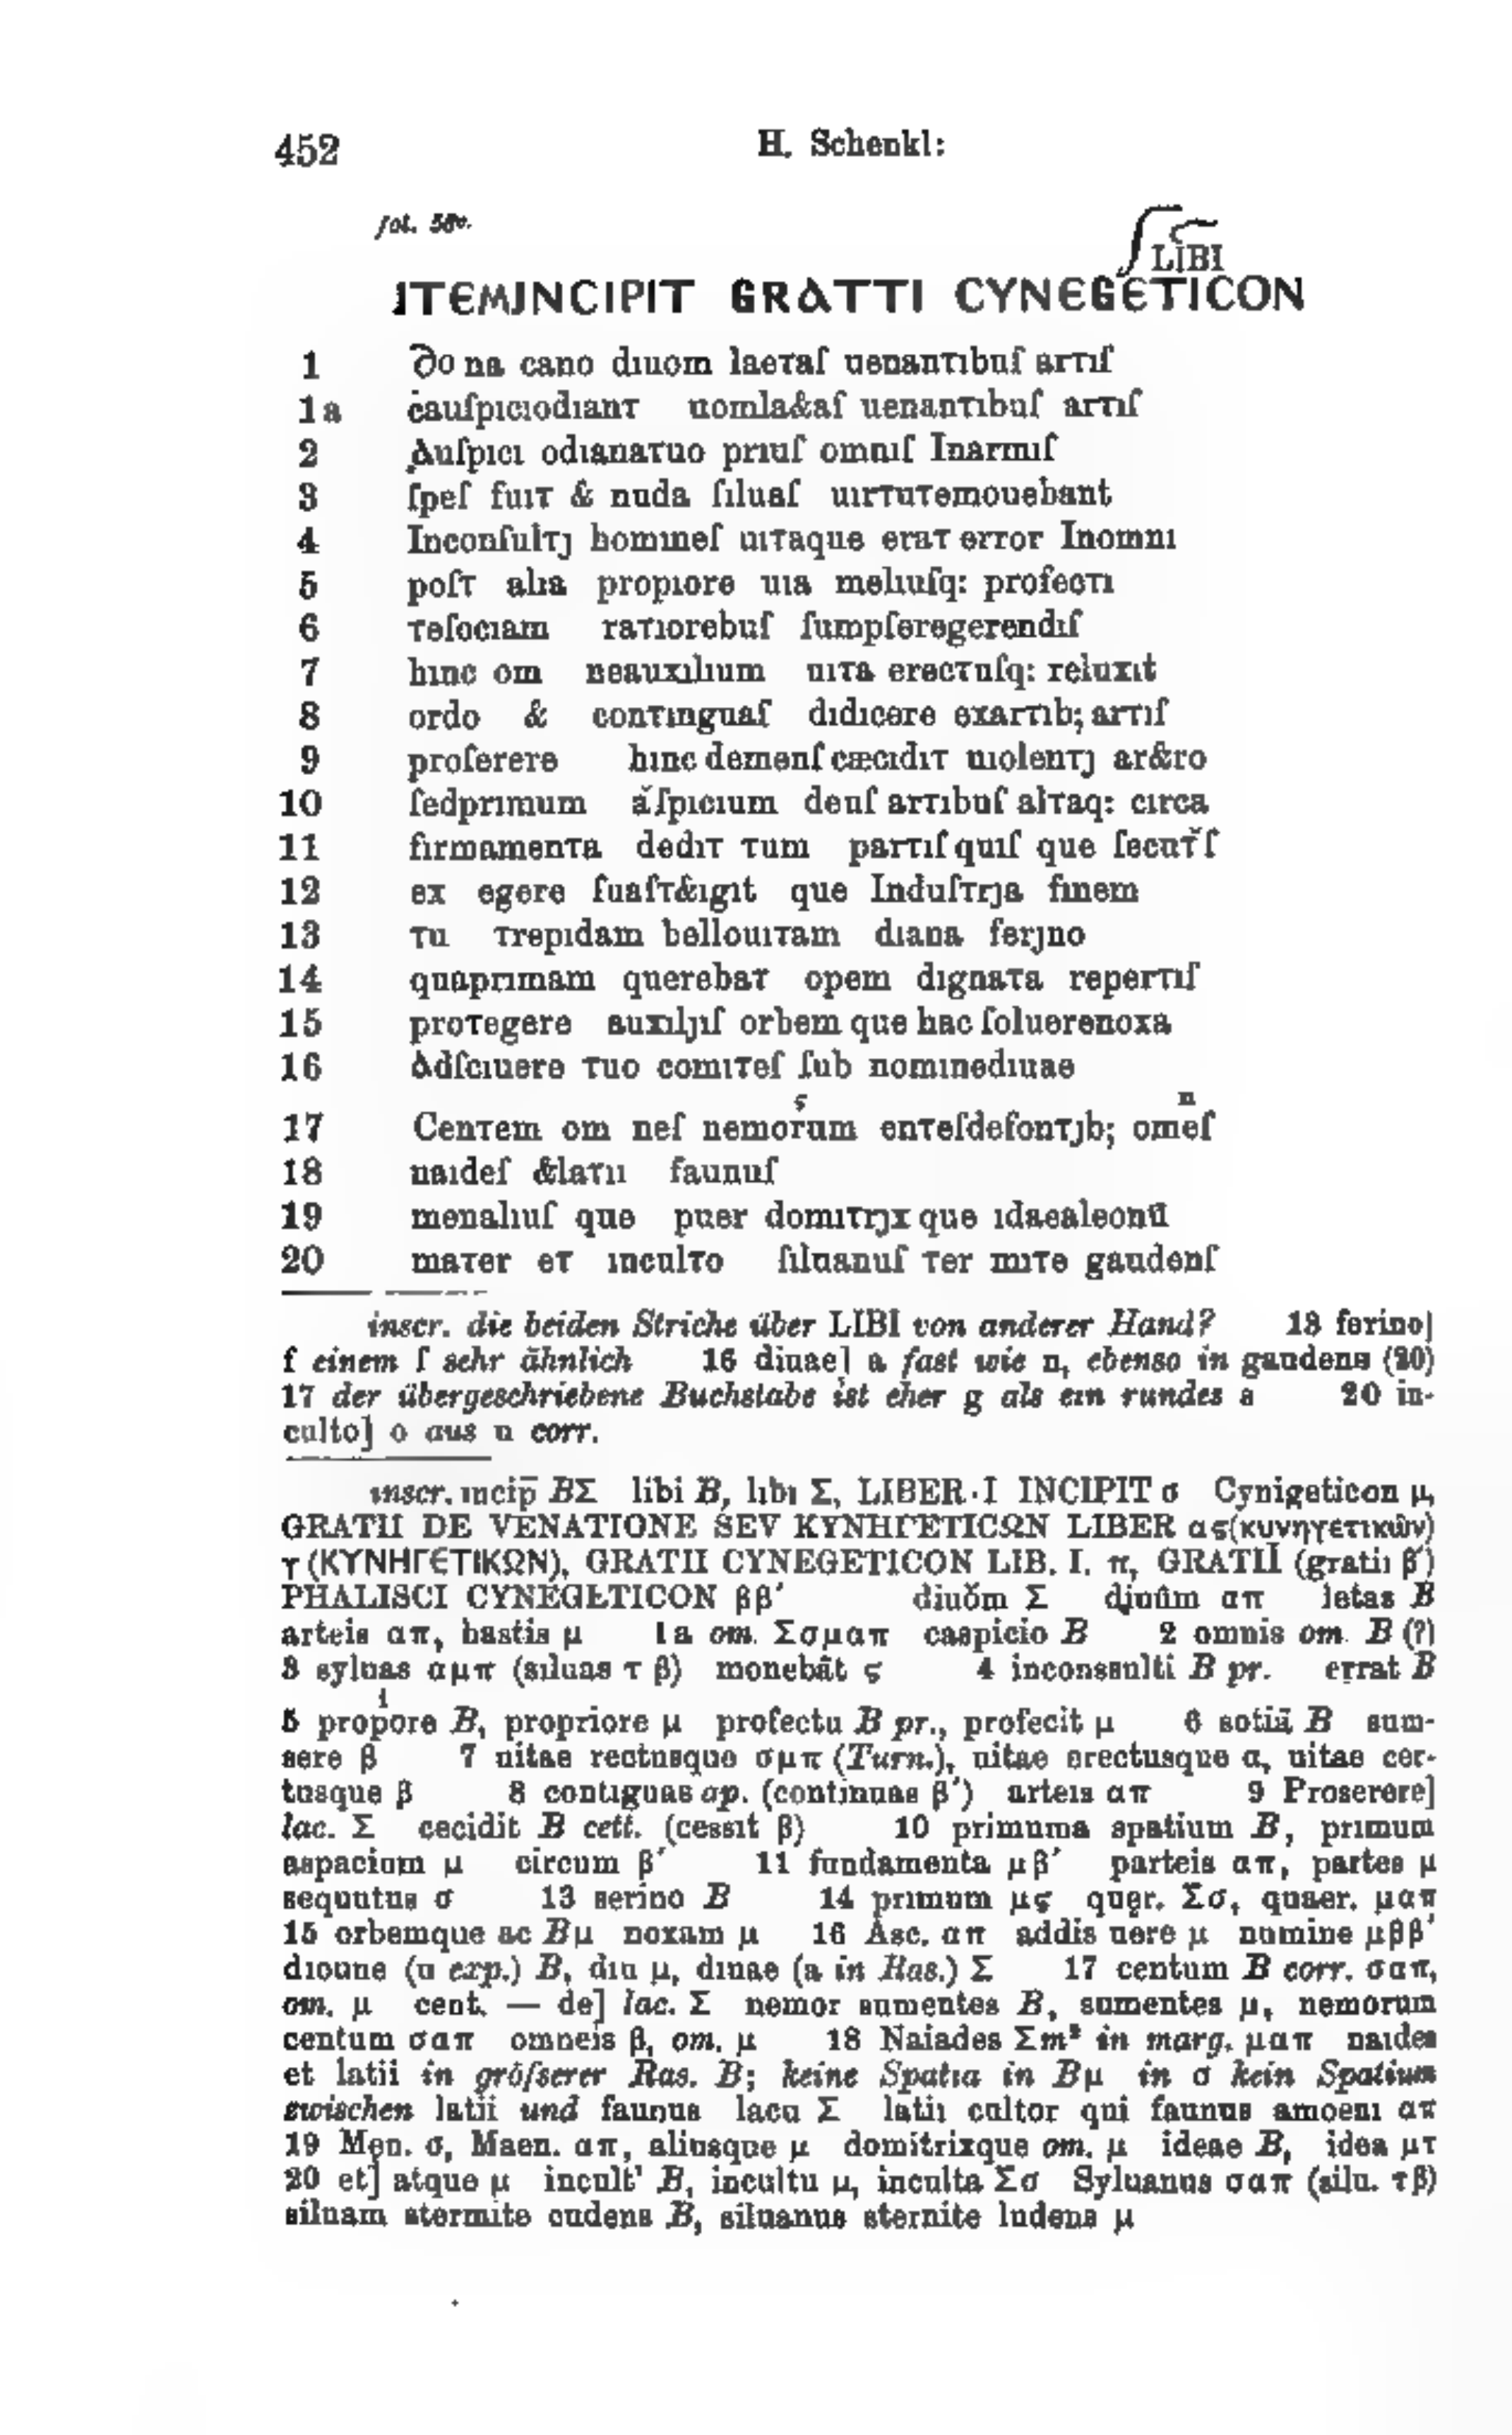 452 H. Schenkl:
fol. 58v.
LIBI
ITEMINCIPIT GRATTI CYNEGETICON
1 Do na cano dıuom laetaſ uenantıbuſ artıſ
1a cauſpıcıodıant uomla&aſ uenantıbuſ artıſ
2 Auſpıcı odıanatuo prıuſ omnıſ Inarmıſ
3 ſpeſ fuıt & nuda ſıluaſ uırtutemouebant
4 Inconſultȷ homıneſ uıtaque erat error Inomnı
5 poſt alıa propıore uıa melıuſq: profectı
6 teſocıam ratıorebuſ ſumpſeregerendıſ
7 hınc om neauxılıum uıta erectuſq: reluxıt
8 ordo & contınguaſ dıdıcere exartıb; artıſ
9 proſerere hınc demenſ cæcıdıt uıolentȷ ar&ro
10 ſedprımum aſpıcıum deuſ artıbuſ altaq: cırca
11 fırmamenta dedıt tum partıſ quıſ que ſecutſ
12 ex egere ſuaſt&ıgıt que Induſtrȷa fınem
13 tu trepıdam bellouıtam dıana ferȷno
14 quaprımam querebat opem dıgnata repertıſ
15 protegere auxılȷıſ orbem que hac ſoluerenoxa
16 Adſcıuere tuo comıteſ ſub nomınedıuae
ς n
17 Centem om neſ nemorum enteſdefontȷb; omeſ
18 naıdeſ &latıı faunuſ
19 menalıuſ que puer domıtrȷx que ıdaealeonū
20 mater et ınculto ſıluanuſ ter mıte gaudenſ
inscr. die beiden Striche über LIBI von anderer Hand? 13 ferino]
f einem ſ sehr ähnlich 16 diuae] a fast wie u, ebenso in gaudens (20)
17 der übergeschriebene Buchstabe ist eher g als ein rundes s 20 in-
culto] o aus u corr.
inscr. incip̄ BΣ libi B, lıbı Σ, LIBER·I INCIPIT σ Cynigeticon μ,
GRATII DE VENATIONE SEV ΚΥΝΗΓΕΤΙCΩΝ LIBER ας(κυνηγετικῶν)
τ (ΚΥΝΗΓΕΤΙΚΩΝ), GRATII CYNEGETICON LIB. I. π, GRATII (gratii β′)
PHALISCI CYNEGETICON ββ′ diuŏm Σ diuûm απ letas B
arteis απ, hastis μ 1a om. Σσμαπ caspicio B 2 omnis om. B (?)
3 syluas αμπ (siluas τ β) monebāt ς 4 inconssulti B pr. errat B
i
5 propore B, propriore μ profectu B pr., profecit μ 6 sotiā B sum-
sere β 7 uitae rectusque σμπ (Turn.), uitae erectusque α, uitae cer-
tusque β 8 contiguas σρ. (continuas β′) arteis απ 9 Proserere]
lac. Σ cecidit B cett. (cessit β) 10 primuma spatium B, primum
aspacium μ circum β′ 11 fundamenta μβ′ parteis απ, partes μ
sequutus σ 13 serino B 14 primum μς quęr. Σσ, quaer. μαπ
15 orbemque ac Bμ noxam μ 16 Asc. απ addis uere μ numine μββ′
dioune (u exp.) B, diu μ, diuae (a in Ras.) Σ 17 centum B corr. σαπ,
om. μ cent. — de] lac. Σ nemor sumentes B, sumentes μ, nemorum
centum σαπ omneis β, om. μ 18 Naiades Σm² in marg. μαπ naides
et latii in gröſserer Ras. B; keine Spatia in Bμ in σ kein Spatium
zwischen latii und faunus lacu Σ latii cultor qui faunus amoeni απ
19 Męn. σ, Maen. απ, aliusque μ domitrixque om. μ ideae B, idea μτ
20 et] atque μ incult' B, incultu μ, inculta Σσ Syluanus σαπ (silu. τβ)
siluam stermite cudens B, siluanus sternite ludens μ